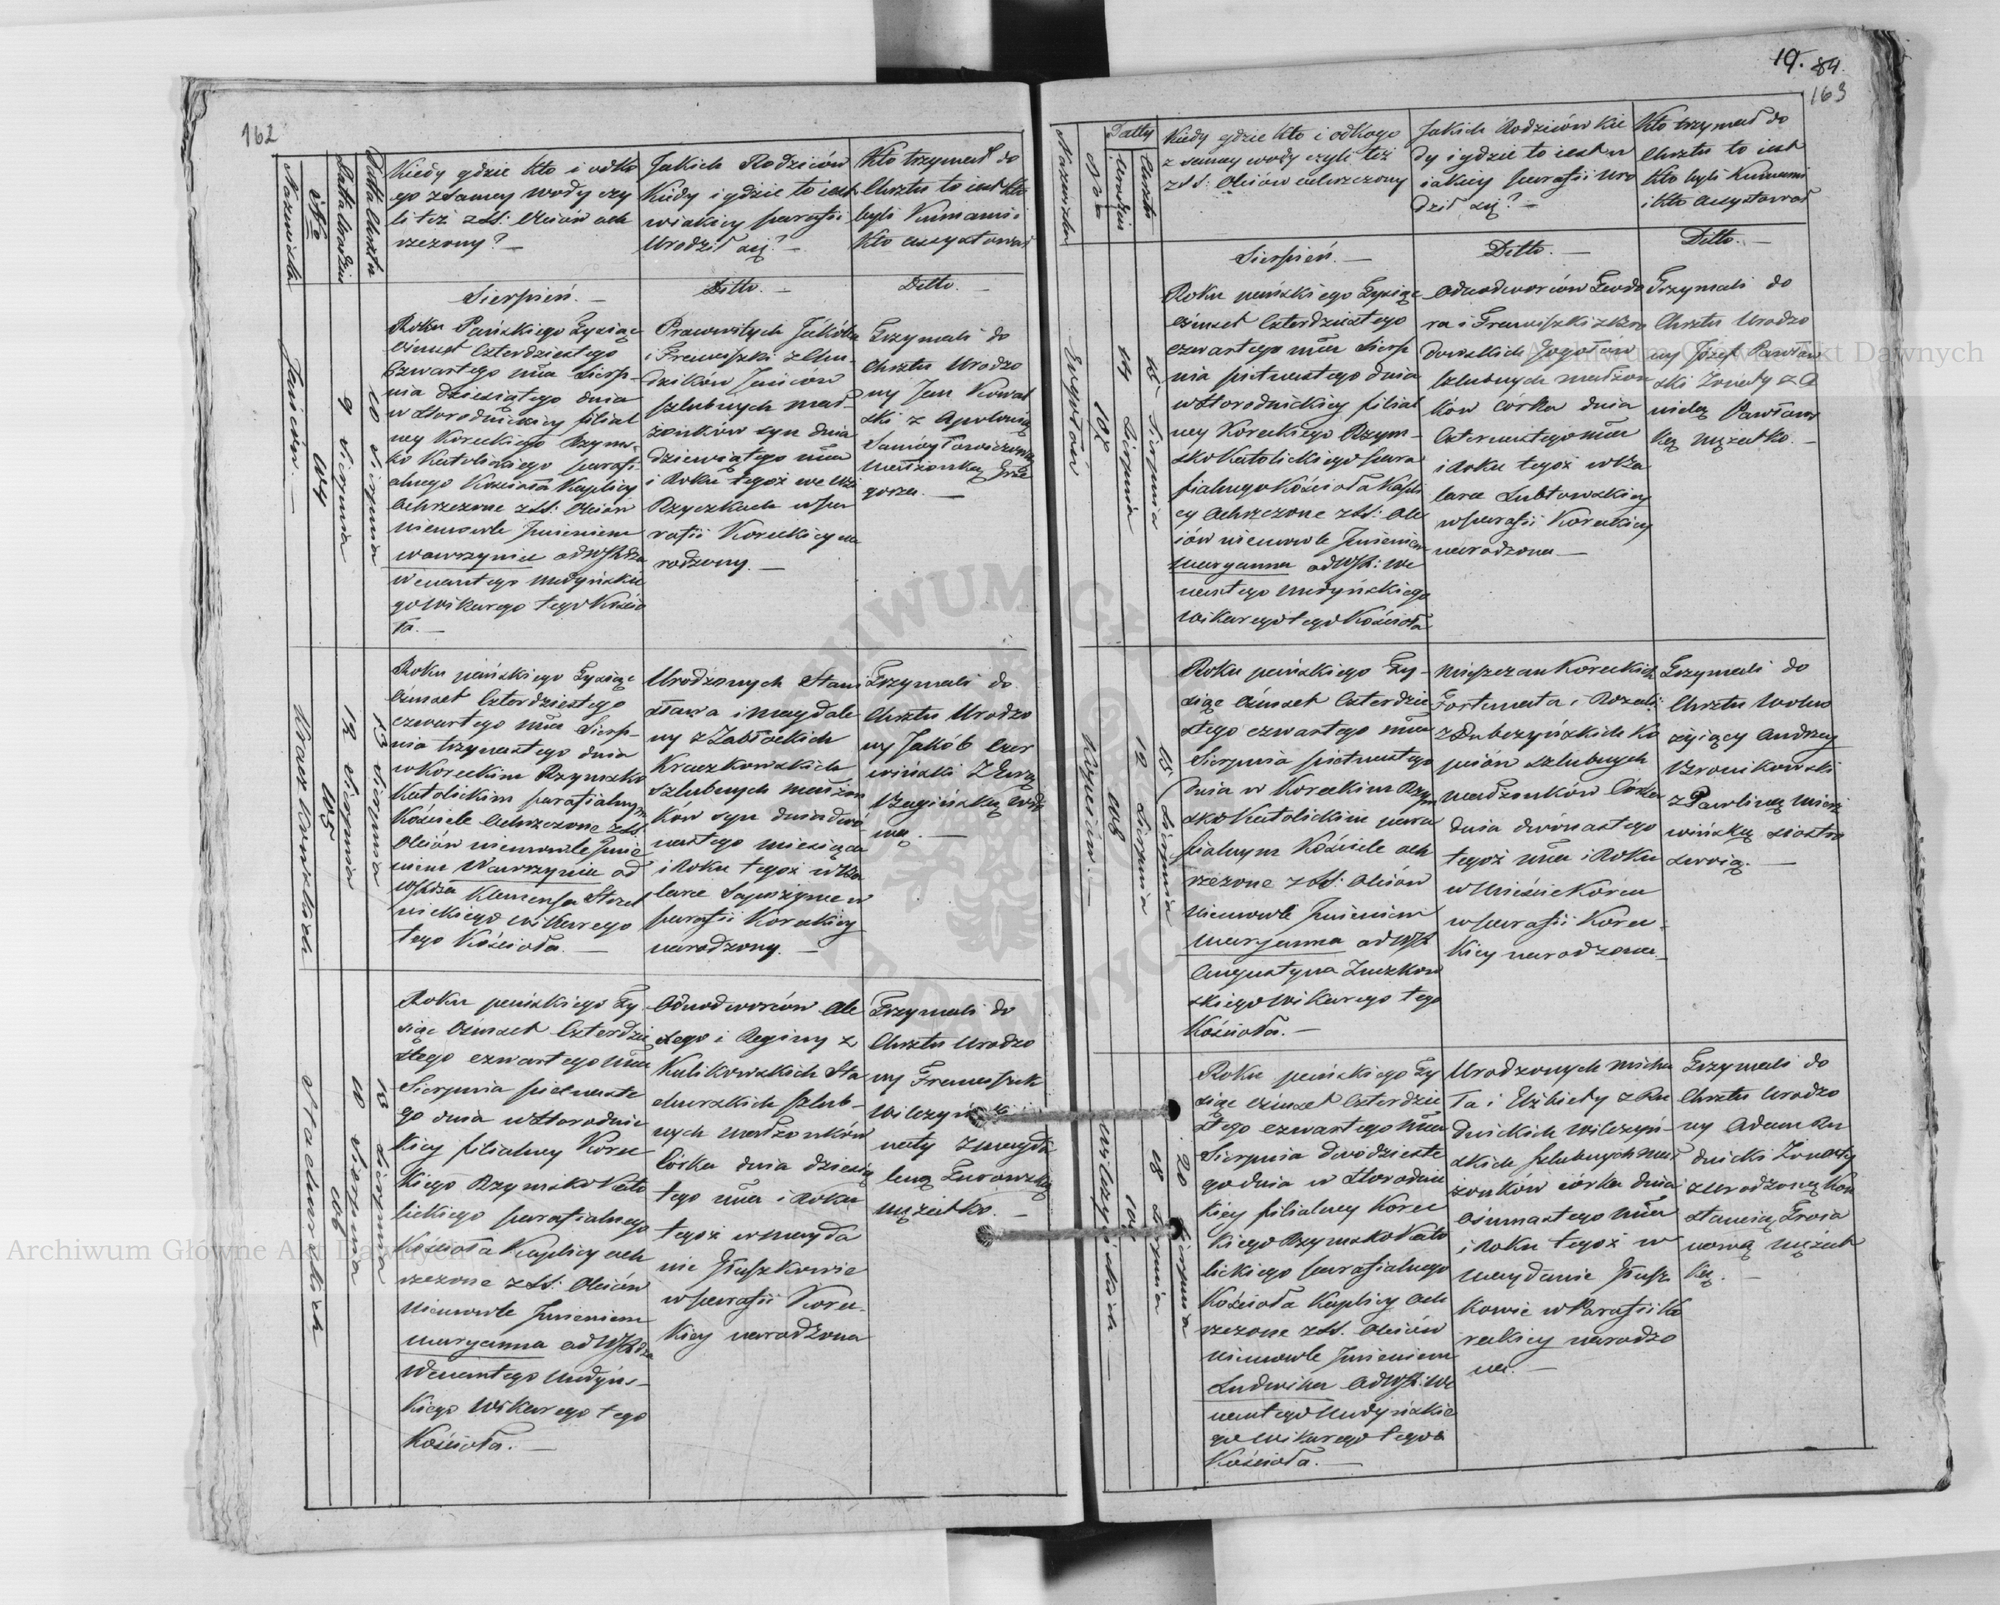 162
Nazwiska
No
Datta Urodzin
Datta Chrztu
Kiedy gdzie kto i odko
go z samey wody czy
li też z SS: Oleiów och
rzczony? —
Jakich Rodziców
Kiedy i gdzie to iest
w iakiey parafii
Urodził się? —
Kto trzymał do
Chrztu to iest kto
byli Kumami i
Kto assystował
Sierpień. —
Ditto. —
Ditto. —
Janiców. —
104
9 Sierpnia
10 Sierpnia
Roku Pańskiego Tysiąc
Ośmset Czterdziestego
Czwartego mca Sierp-
nia dziesiątego dnia
w Horodnickiey filial
ney Koreckiego Rzyms-
ko Katolickiego parafi
alnego Kościoła Kaplicy
Ochrzczone z SS: Oleiów
niemowle Imieniem
Wawrzyniec od WJXdza
Wenantego Medyńskie
go Wikarego tego Kościo
ła. —
Prawowitych Jakóba
i Franciszki z Chu-
dzików Janiców
szlubnych mał-
żonków syn dnia
dziewiątego mca
i Roku tegoż we wsi
Rzyczkach w pa
rafii Koreckiey na
rodzony. —
Trzymali do
Chrztu Urodzo
ny Jan Kowal
ski z Apolonią
małżonką Grze
gorza. —
Kraczkowskich
105
12 Sierpnia
13 Sierpnia
Roku pańskiego Tysiąc
Ośmset Czterdziestego
czwartego mca Sierp-
nia trzynastego dnia
w Koreckim Rzymsko
Katolickim parafialnym
Kościele Ochrzczone z SS.
Oleiów niemowle Imie
niem Wawrzyniec od
WJXdza Klemensa Strzel
nickiego Wikarego
tego Kościoła. —
Urodzonych Stani
sława i Magdale
ny z Zabłockich
Kraczkowskich
Szlubnych małżon
ków syn dnia dwó-
nastego miesiąca
i Roku tegoż w Ko
lece Sapożynce w
parafii Koreckiey
narodzony. —
Trzymali do
Chrztu Urodzo
ny Jakób Czer
wiński z Ewą
wą. —
Stachurskich
106
10 Sierpnia
15 Sierpnia
Roku pańskiego Ty-
siąc Ośmset Czterdzie
stego czwartego mca
Sierpnia pietnaste
go dnia w Horodnic
kiey filialney Korec
kiego Rzymsko Kato
lickiego parafialnego
Kościoła Kaplicy och
rzczone z SS: Oleiów
niemowle Imieniem
Maryanna od WJXdza
Wenantego Medyńs-
kiego Wikarego tego
Kościoła. —
Odnodworców Ole
xego i Reginy z
Kulikowskich Sta
churskich szlub-
nych małżonków
Córka dnia dziesią
tego mca i Roku
tegoż w Mayda
nie Hłuszkowie
w parafii Korec-
kiey narodzona
Trzymali do
Chrztu Urodzo
ny Franciszek
Wilczyński żo
naty z Magda
leną Turowską
mężatką. —
19. 84.
163
Nazwiska
No
Datty
Urodzin
Chrztu
Kiedy gdzie kto i odkogo
z samey wody czyli też
z SS: Oleiów ochrzczony
Jakich Rodziców kie
dy i gdzie to iest w
iakiey parafii Uro
dził się? —
Kto trzymał do
Chrztu to iest
kto byli Kumami
i kto assystował
Sierpień. —
Ditto. —
Ditto. —
107
14 Sierpnia
15 Sierpnia
Roku pańskiego Tysiąc
Ośmset Czterdziestego
czwartego mca Sierp
nia pietnastego dnia
w Horodnickiey filial
ney Koreckiego Rzym-
sko Katolickiego para
fialnego Kościoła Kapli
cy Ochrzczone z SS: Ole
iów niemowle Imieniem
Maryanna od WJX: We
nantego Medyńskiego
Wikarego tego Kościoła
Odnodworców Teodo
ra i Franciszki z Bro
dowskich
szlubnych małżon
ków córka dnia
Czternastego mca
i Roku tegoż w Ko
lece Lubtowskiey
w parafii Koreckiey
narodzona —
Trzymali do
Chrztu Urodzo
ny Józef Pawłow
ski żonaty z A
nielą Pawłows
ką mężatką. —
Kopciów. —
108
12 Sierpnia
15 Sierpnia
Roku pańskiego Ty-
siąc Ośmset Czterdzie
stego czwartego mca
Sierpnia pietnastego
Dnia w Koreckim Rzym
sko Katolickim para
fialnym Kościele och
rzczone z SS: Oleiów
Niemowle Imieniem
Maryanna od WJX
Augustyna Zuczkow
skiego Wikarego tego
Kościoła. —
Mieszczan Koreckich
Fortunata i Rozalii
z Dubczyńskich Ko
pciów szlubnych
małżonków Córka
dnia dwónastego
tegoż mca i Roku
w Mieście Korcu
w parafii Korec-
kiey narodzona. —
Trzymali do
Chrztu Wolno
żyiący Andrzey
Bronikowski
z Pawliną Mierz
wińską siostrą
swoią. —
Wilczyńskich
109
18 Sierpnia
20 Sierpnia
Roku pańskiego Ty
siąc Ośmset Czterdzie
stego czwartego mca
Sierpnia dwódzieste
go dnia w Horodnic
kiey filialney Korec
kiego Rzymsko Kato
lickiego parafialnego
Kościoła Kaplicy Och
rzczone z SS. Oleiów
niemowle Imieniem
Ludwika od WJX: We
nantego Medyńskie
go Wikarego tegoż
Kościoła. —
Urodzonych Micha
ła i Elżbiety z Ru
dnickich Wilczyń-
skich szlubnych mał
żonków córka dnia
Ośmnastego mca
i Roku tegoż w
Maydanie Hłusz
kowie w Parafii Ko
reckiey narodzo
na. —
Trzymali do
Chrztu Urodzo
ny Adam Ru
dnicki żonaty
z Urodzoną Kon
stancią Troia
nową mężat
ką. —
Archiwum Główne Akt Dawnych
Archiwum Główne Akt Dawnych